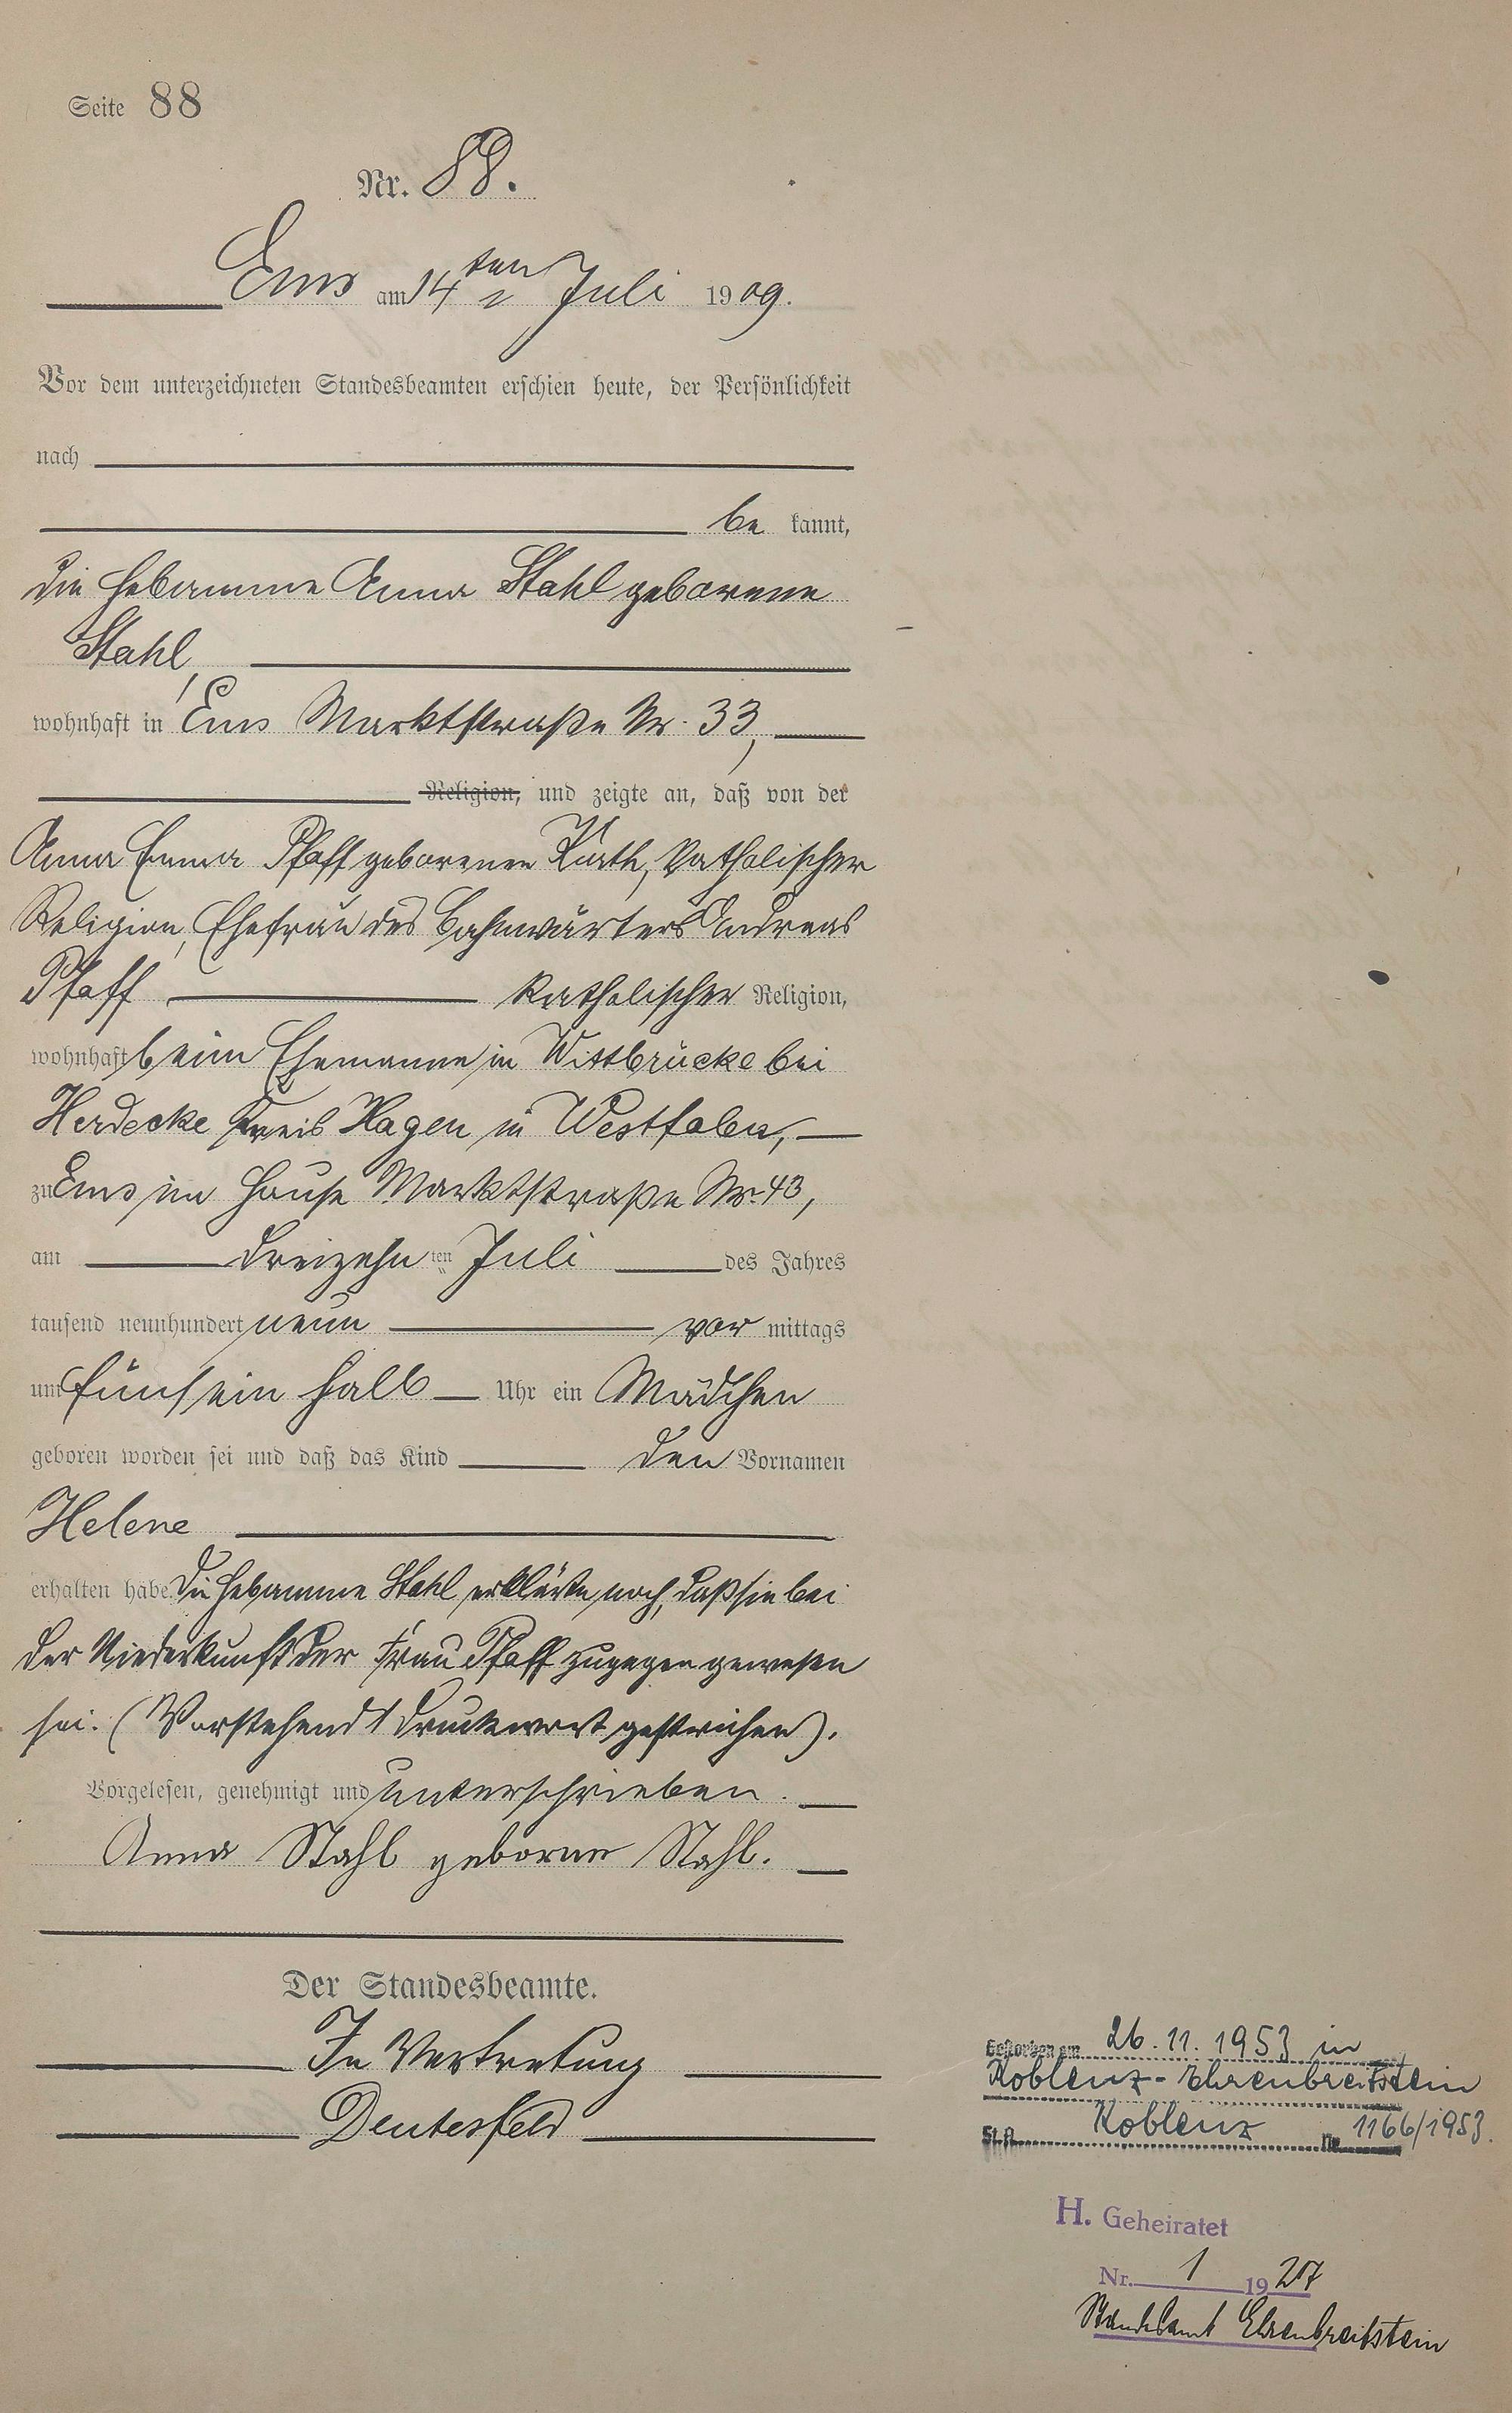 Seite 88
Nr. 88.
Ems am 14ten Juli 1909.
Vor dem unterzeichneten Standesbeamten erschien heute, der Persönlichkeit
nach
be kannt,
die Hebamme Anna Stahl geborene
Stahl,
wohnhaft in Ems Marktstraße Nr. 33,
Religion, und zeigte an, daß von der
Anna Emma Pfaff geborenen Kurth, katholischer
Religion, Ehefrau des Bahnwärters Andreas
Pfaff katholischer Religion,
wohnhaft beim Ehemanne in Wittbrücke bei
Herdecke Kreis Hagen in Westfalen,
zu Ems im Hause Marktstraße Nr. 43,
am dreizehn ten Juli des Jahres
tausend neunhundert neun vor mittags
um fünf ein halb Uhr ein Mädchen
geboren worden sei und daß das Kind den Vornamen
Helene
erhalten habe. Die Hebamme Stahl erklärte noch, daß sie bei
der Niederkunft der Frau Pfaff zugegen gewesen
sei. (Vorstehend 1 Druckwort gestrichen).
Vorgelesen, genehmigt und unterschrieben.
Anna Stahl geborne Stahl.
Der Standesbeamte.
In Vertretung
Deutesfeld
Gestorben am 26.11.1953 in
Koblenz-Ehrenbreitstein
St.A. Koblenz Nr. 1166/1953.
H. Geheiratet
Nr. 1 1927
Standesamt Ehrenbreitstein